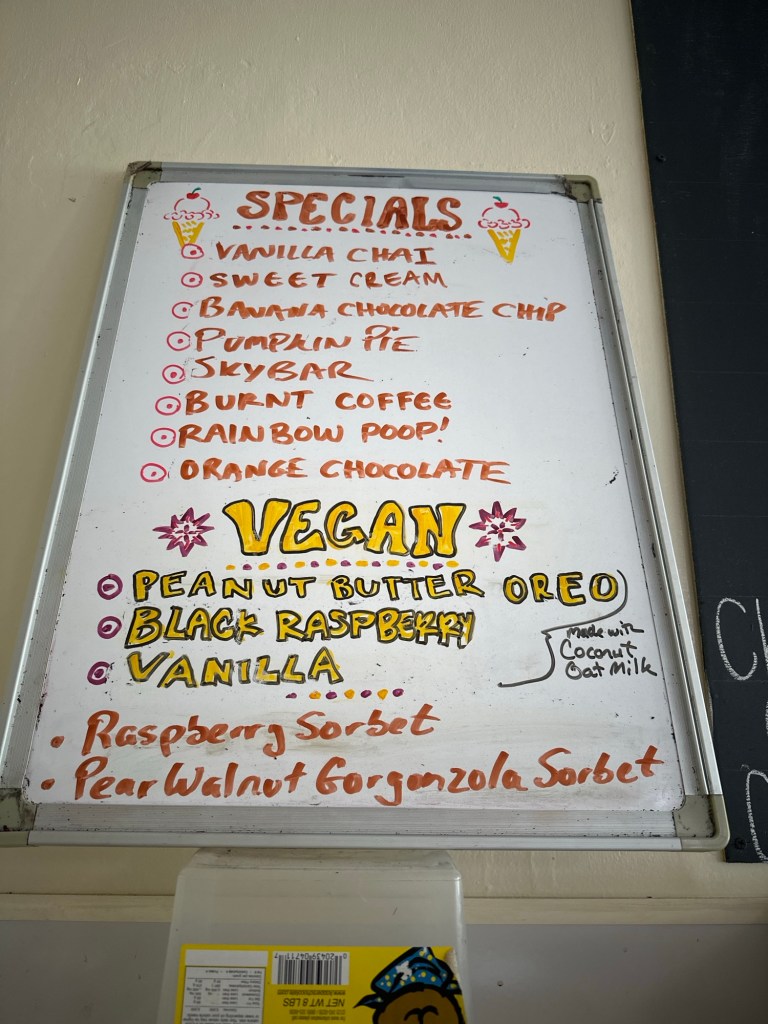 SPECIALS
VANILLA CHAI
SWEET CREAM
BANANA CHOCOLATE CHIP
PUMPKIN PIE
SKYBAR
BURNT COFFEE
RAINBOW POOP!
ORANGE CHOCOLATE
VEGAN
PEANUT BUTTER OREO
BLACK RASPBERRY
VANILLA
made with
Coconut
Oat Milk
• Raspberry Sorbet
• Pear Walnut Gorgonzola Sorbet
NET WT 8 LBS